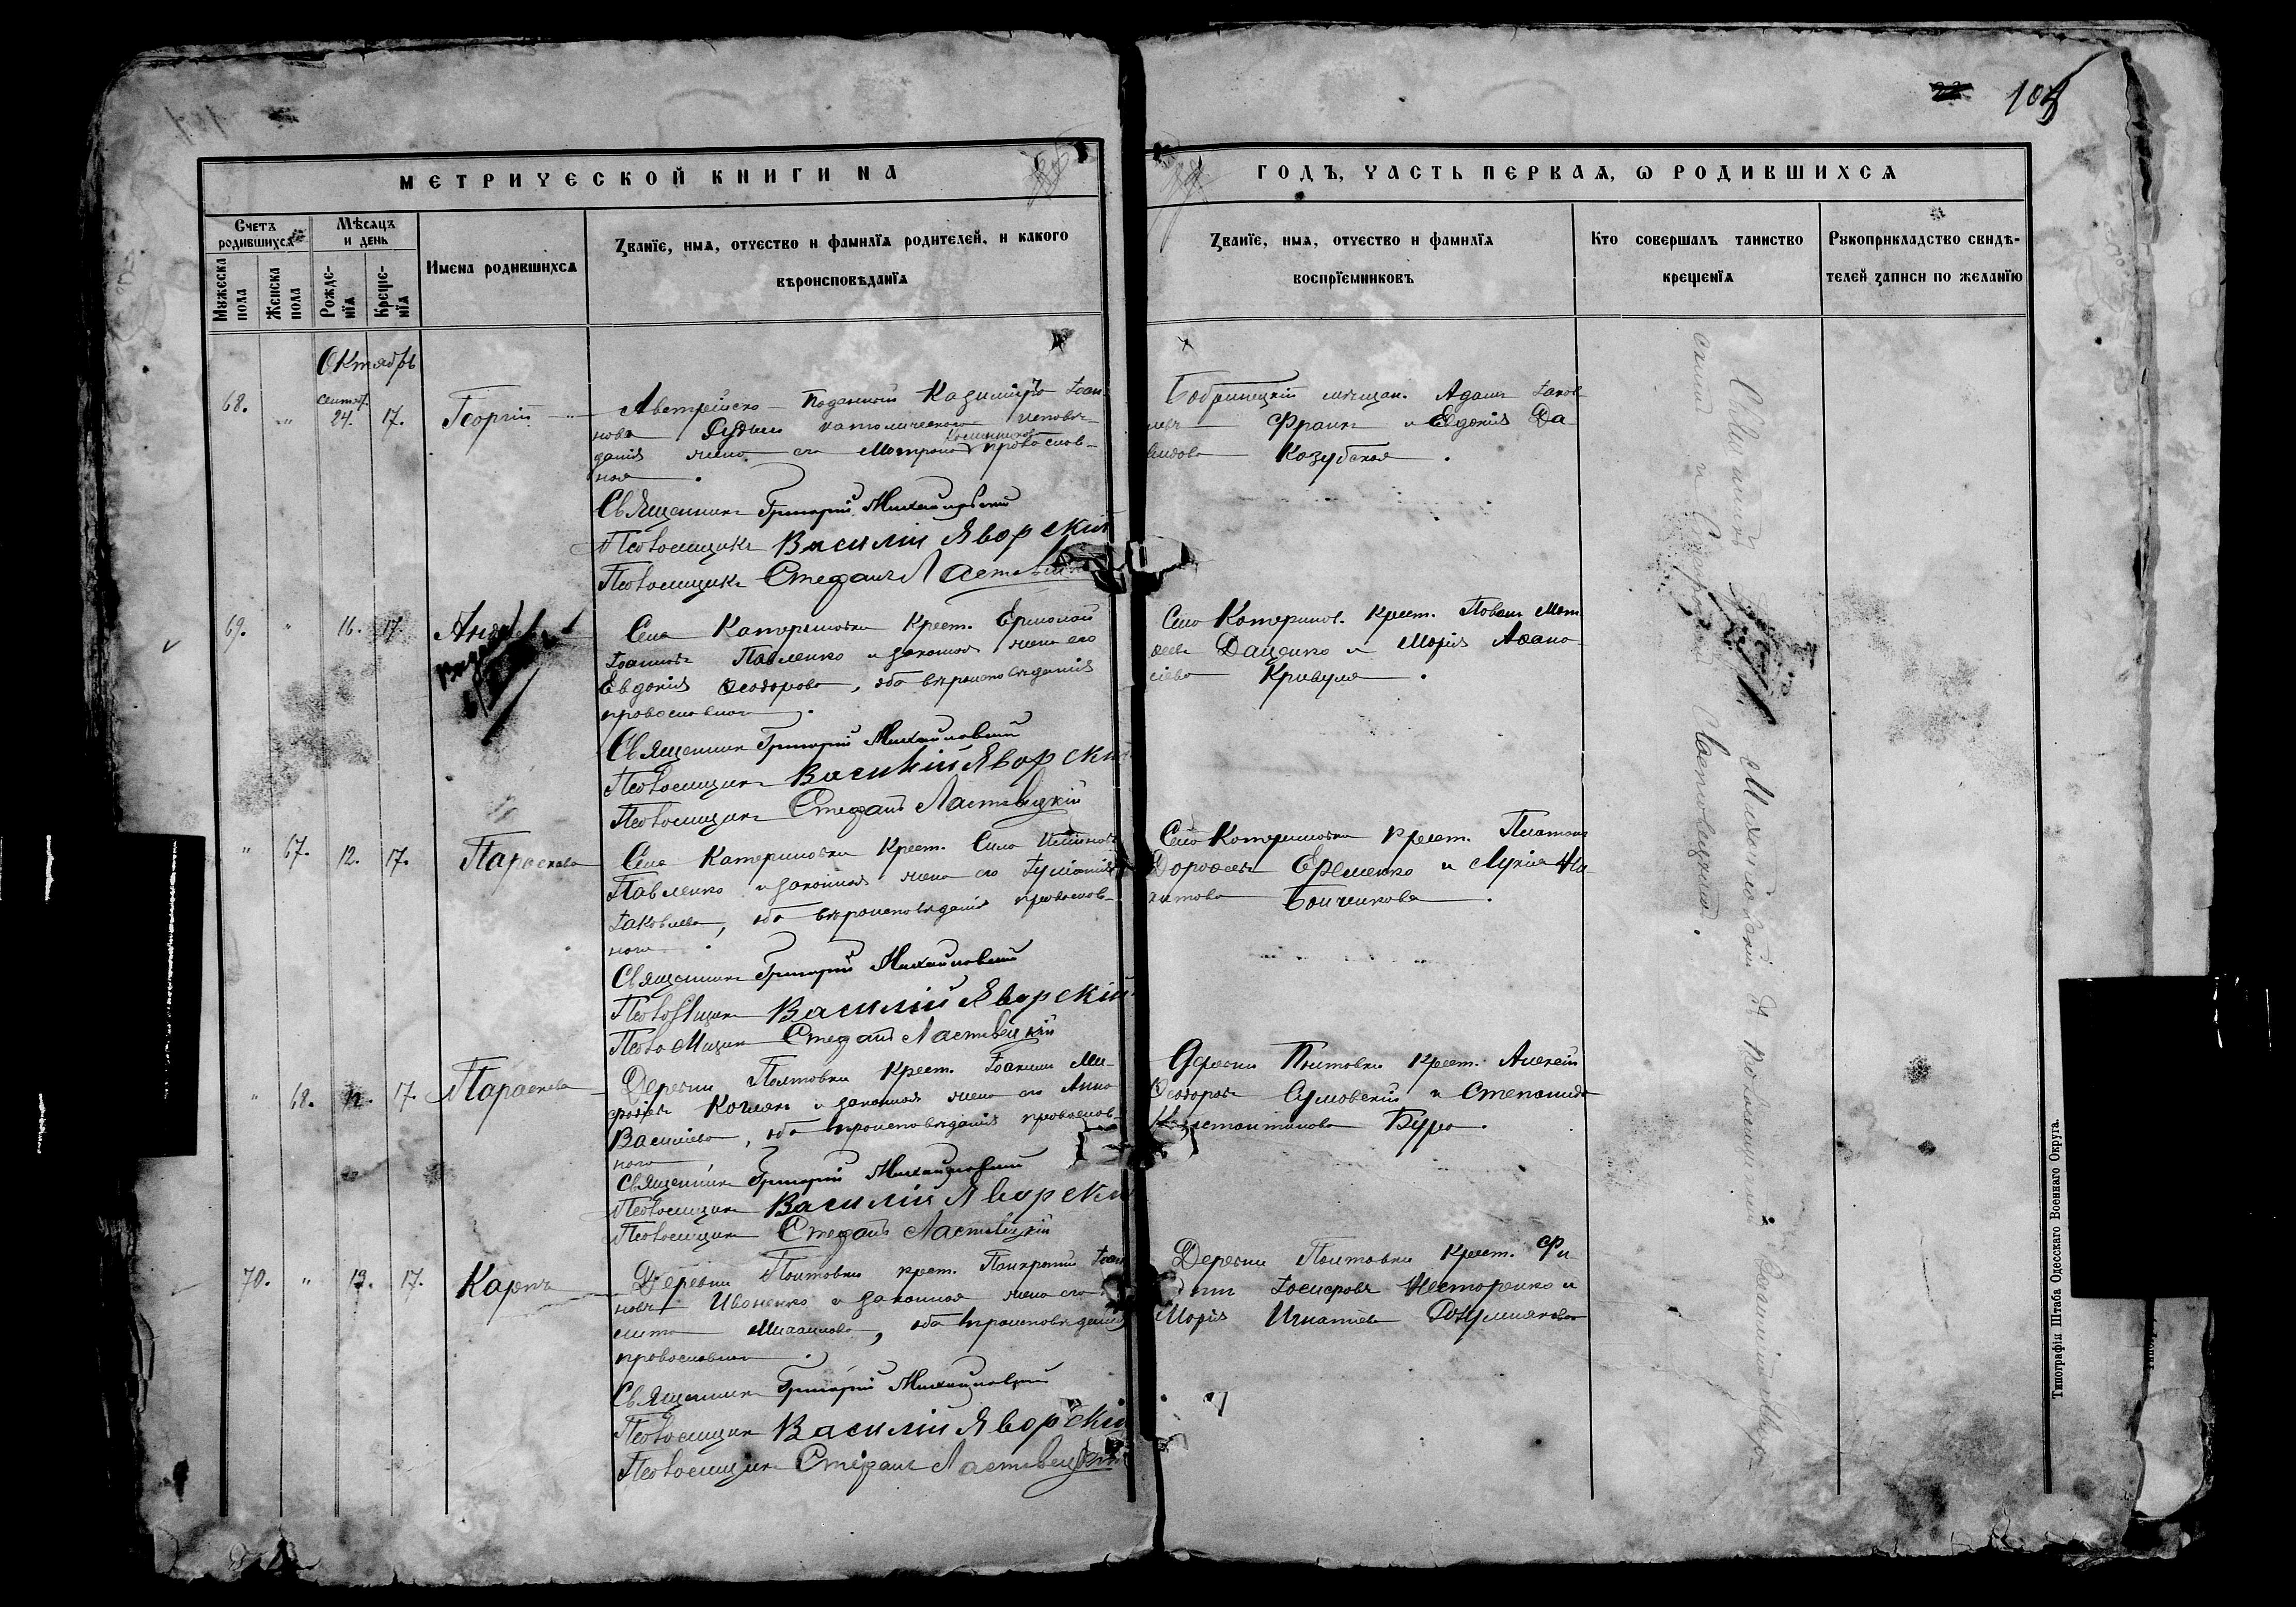 104
МЕТРИЧЕСКОЙ КНИГИ НА
ГОДЪ, ЧАСТЬ ПЕРВАЯ, Ѡ РОДИВШИХСЯ
Счетъ родившихся
Мужеска пола
Женска пола
Мѣсяцъ и день
Рожде-
нїя
Креще-
нїя
Имена родившихся
Званїе, имя, отчество и фамилїя родителей, и какого
вѣроисповѣданїя
Званїе, имя, отчество и фамилїя
воспрїемниковъ
Кто совершалъ таинство
крещенїя
Рукоприкладство свидѣ-
телей записи по желанїю
Октябрь
68. " сентяб. 24. 17. Георгій
Австрійско-Подданный Казимиръ Іоан-
новъ католическаго исповѣ-
данія жена его Матрона православ-
ная.
Священникъ Григорій Михайловскій
Псаломщикъ Василій Яворскій
Псаломщикъ Стефанъ Ластовецкій
Бобринецкій мѣщан. Адамъ Іаков-
левъ Франкъ и Евдокія Да-
видова Козубская.
69. " 16. 17.
Села Катериновки Крест. Ермолай
Іоанновъ Павленко и законная жена его
Евдокія Ѳеодорова, оба вѣроисповѣданія
православнаго.
Священникъ Григорій Михайловскій
Псаломщикъ Василій Яворскій
Псаломщикъ Стефанъ Ластовецкій
Села Катеринов. Крест. Павелъ Мат-
ѳеевъ Даценко и Марія Аѳана-
сіева Кривуля.
" 67. 12. 17. Параскева
Села Катериновки Крест. Сила
Павленко и законная жена его Іуліанія
Іаковлева, оба вѣроисповѣданія православ-
наго.
Священникъ Григорій Михайловскій
Псаломщикъ Василій Яворскій
Псаломщикъ Стефанъ Ластовецкій
Села Катериновки Крест. Платонъ
Дороѳеевъ Еременко и Лукія Ни-
китова Бойченкова.
" 68. 12. 17. Параскева
Деревни Полтовки Крест. Іоакимъ Ми-
трофановъ и законная жена его Анна
Василіева, оба вѣроисповѣданія православ-
наго
Священникъ Григорій Михайловскій
Псаломщикъ Василій Яворскій
Псаломщикъ Стефанъ Ластовецкій
Деревни Полтовки Крест. Алексій
Ѳеодоровъ Сумовскій и Степанида
Константинова Бура.
70. " 13. 17. Карпъ
Деревни Полтовки крест. Панкратій Іоан-
новъ Иваненко и законная жена его
Михаилова, оба вѣроисповѣданія
православнаго.
Священникъ Григорій Михайловскій
Псаломщикъ Василій Яворскій
Псаломщикъ Стефанъ Ластовецкій
Деревни Полтовки Крест. Фи-
липпъ Іосифовъ Нестеренко и
Марія Игнатіева
Священникъ Михайловскій съ псаломщиками Василіемъ Явор-
скимъ и Стефаномъ Ластовецкимъ.
Типографія Штаба Одесскаго Военнаго Округа.